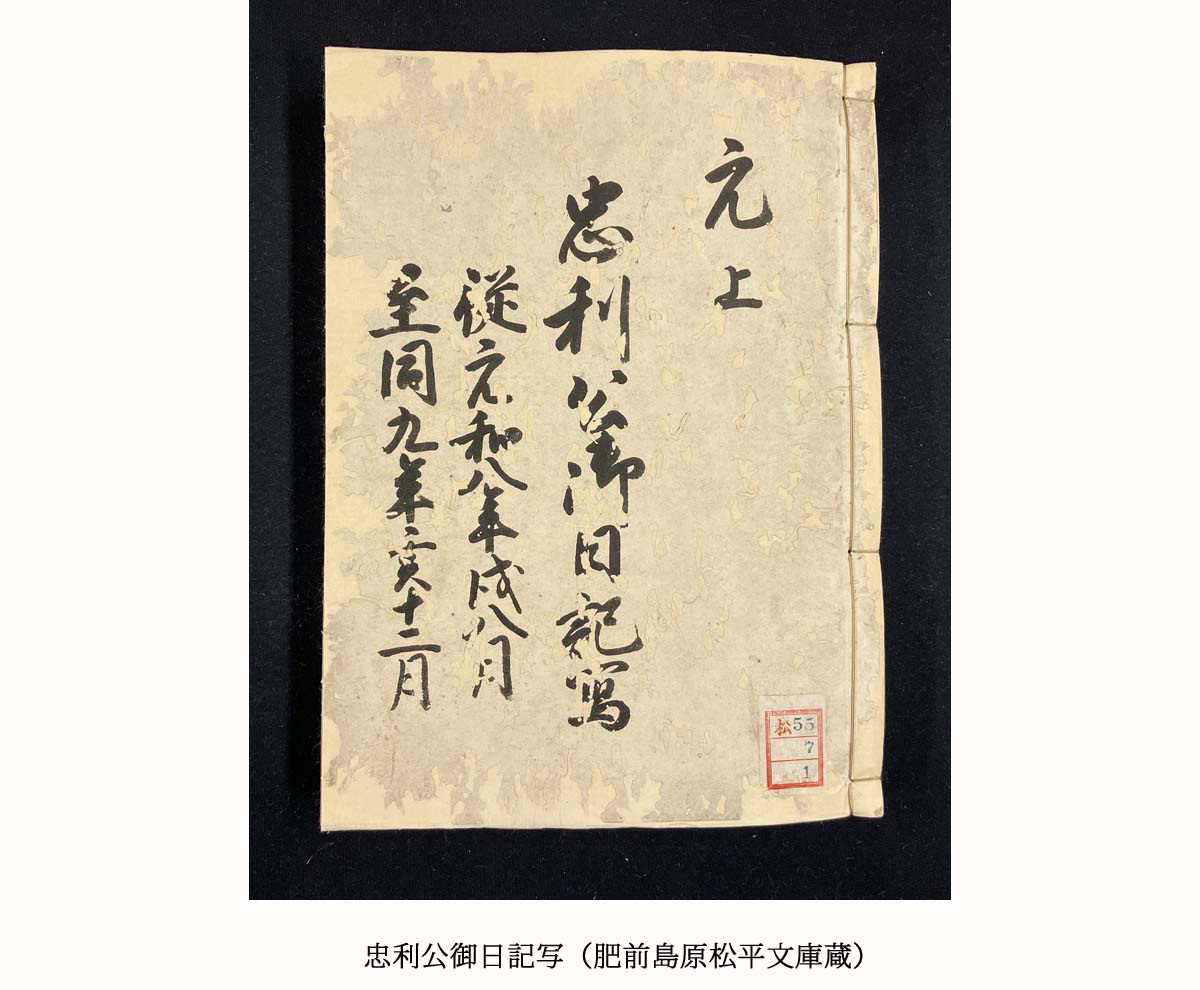 元上
忠利公御日記写
従元和八年戌八月
至同九年亥十二月
松55
7
1
忠利公御日記写（肥前島原松平文庫蔵）